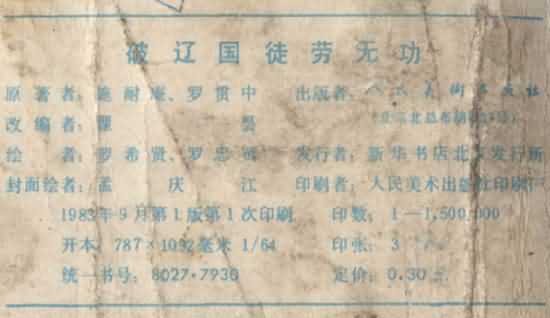 破辽国徒劳无功
原著者：施耐庵、罗贯中 出版者：人民美术出版社
改编者： （北京北总布胡同32号）
绘者：罗希贤、罗忠 发行者：新华书店北京发行所
封面绘者：孟庆江 印刷者：人民美术出版社印刷厂
1983年9月第1版第1次印刷 印数：1—1,500,000
开本：787×1092毫米 1/64 印张：3
统一书号：8027·7930 定价：0.30元